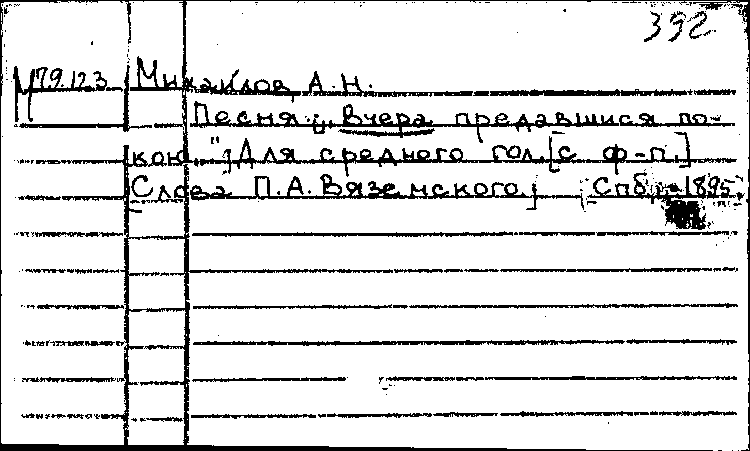 392
М 79.12.3 Михайлов, А.Н.
Песня: „Вчера предавшися по-
кою..." Для среднего гол. [с ф-п.]
[Слова П.А. Вяземского.] [Спб., 1895.